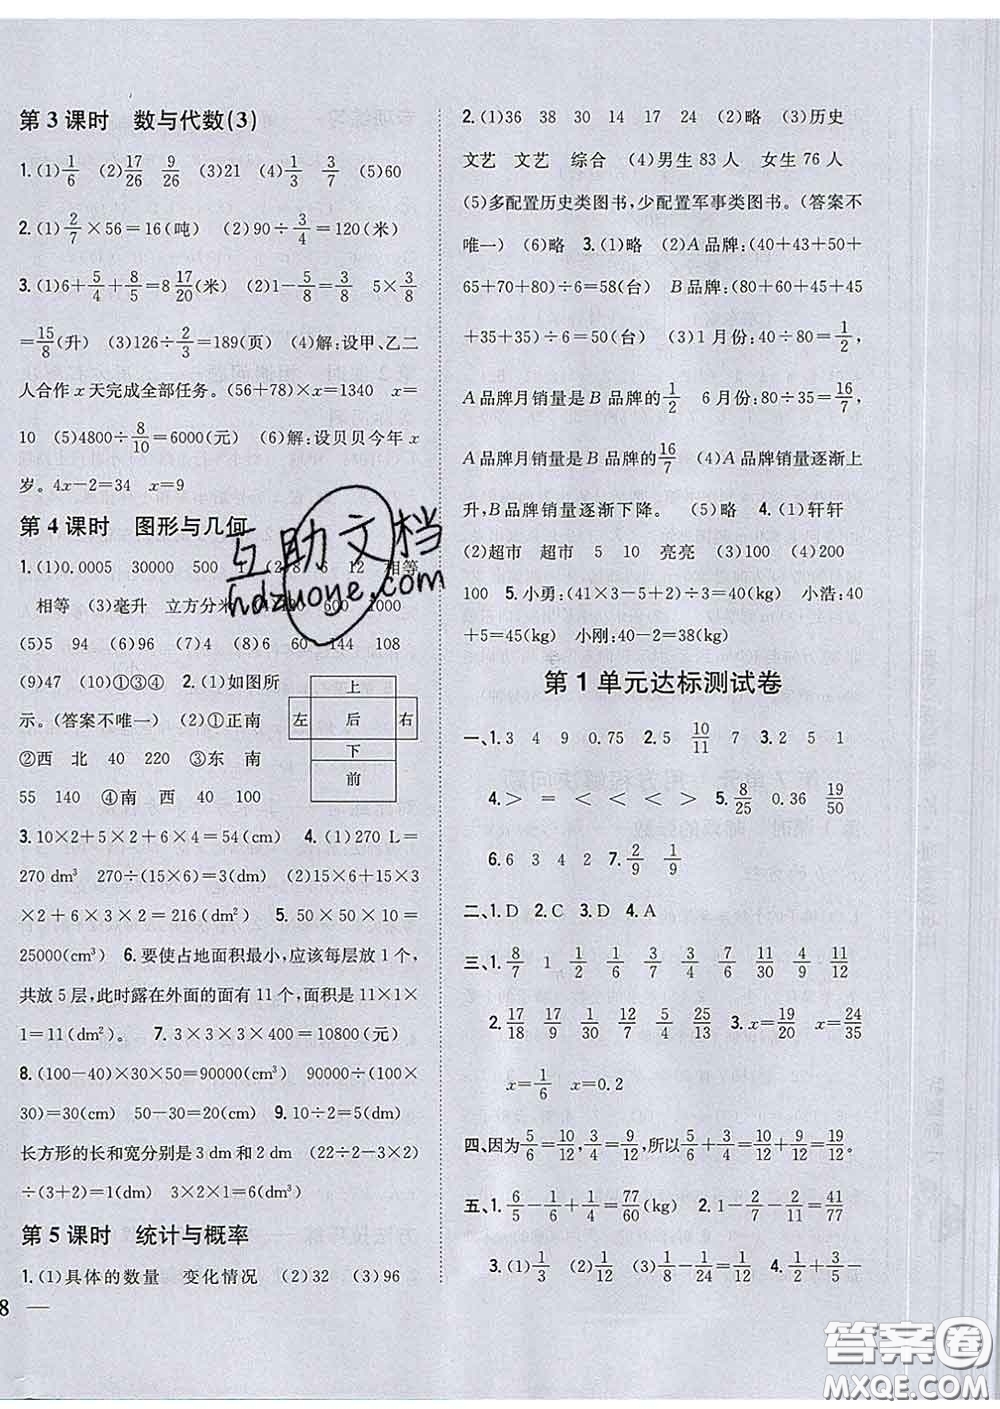 第3课时　数与代数(3)
1.(1)1/6　(2)17/26　9/26　(3)21　(4)1/3　3/7　(5)60
2.(1)2/7×56=16(吨)　(2)90÷3/4=120(米)
3.(1)6+5/4+8/5=8 17/20(米)　(2)1-5/8=3/8　5×3/8
=15/8(升)　(3)126÷2/3=189(页)　(4)解:设甲、乙二
人合作x天完成全部任务。(56+78)×x=1340　x=
10　(5)4800÷8/10=6000(元)　(6)解:设贝贝今年x
岁。4x-2=34　x=9
第4课时　图形与几何
1.(1)0.0005　30000　500　12　8　6　12　相等
相等　(3)毫升　立方分米　600　1000
(5)5　(6)96　(7)4　(8)6　60　144　108
(9)47　(10)①③④　2.(1)如图所
示。(答案不唯一)　(2)①正南
②西　北　40　220　③东　南
55　140　④西　南　40　100
上
左　后　右
下
前
3.10×2+5×2+4×6=54(cm)　4.(1)270 L=
270 dm³　270÷(15×6)=3(dm)　(2)15×6+15×3
×2+6×3×2=216(dm²)　5.50×50×10=
25000(cm³)　6.要使占地面积最小,应该每层放1个,
共放5层,此时露在外面的面有11个,面积是11×1×
1=11(dm²)。　7.3×3×3×400=10800(元)
8.(100-40)×30×50=90000(cm³)　90000÷(100×
30)=30(cm)　50-30=20(cm)　9.10÷2=5(dm)
长方形的长和宽分别是3 dm和2 dm　(22÷2-3×2)
÷(3+2)=1(dm)　3×2×1=6(dm³)
第5课时　统计与概率
1.(1)具体的数量　变化情况　(2)32　(3)96
8 —
2.(1)36　38　30　14　17　24　(2)略　(3)历史
文艺　文艺　综合　(4)男生83人　女生76人
(5)多配置历史类图书,少配置军事类图书。(答案不
唯一)　(6)略　3.(1)略　(2)A品牌:(40+43+50+
65+70+80)÷6=58(台)　B品牌:(80+60+45+45
+35+35)÷6=50(台)　(3)1月份:40÷80=1/2,
A品牌月销量是B品牌的1/2　6月份:80÷35=16/7,
A品牌月销量是B品牌的16/7　(4)A品牌销量逐渐上
升,B品牌销量逐渐下降。　(5)略　4.(1)轩轩
(2)超市　超市　5　10　亮亮　(3)100　(4)200
100　5.小勇:(41×3-5+2)÷3=40(kg)　小浩:40
+5=45(kg)　小刚:40-2=38(kg)
第1单元达标测试卷
一、1.3　4　9　0.75　2.5　10/11　7　3.2　5　1
4.>　=　<　<　>　>　5.8/25　0.36　19/50
6.6　3　4　2　7.2/9　1/9
二、1.D　2.C　3.D　4.A
三、1.8/7　1　1/2　1/6　3/7　7/6　7/30　11/8　4/9　11/12
2.17/18　17/9　1/30　7/12　5/4　13/20　3.x=19/20　x=24/35
x=1/6　x=0.2
四、因为5/6=10/12,3/4=9/12,所以5/6+3/4=10/12+9/12=19/12。
五、1.6/5-1/6+1/4=77/60(kg)　2.1-2/7-2/11=41/77
3.(1)1/3　(2)1/12　(3)　4.1/2+3/5-
互助文档
hdzuoye.com
答案圈
MXQE.COM